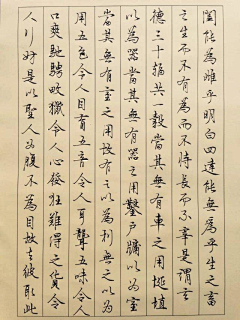 闔能為雌乎明白四達能無為乎生之畜
之生而不有為而不恃長而不宰是謂玄
德三十輻共一轂當其無有車之用埏埴
以為器當其無有器之用鑿戶牖以為室
當其無有室之用故有之以為利無之以為
用五色令人目盲五音令人耳聾五味令人
口爽馳騁畋獵令人心發狂難得之貨令
人行妨是以聖人為腹不為目故去彼取此